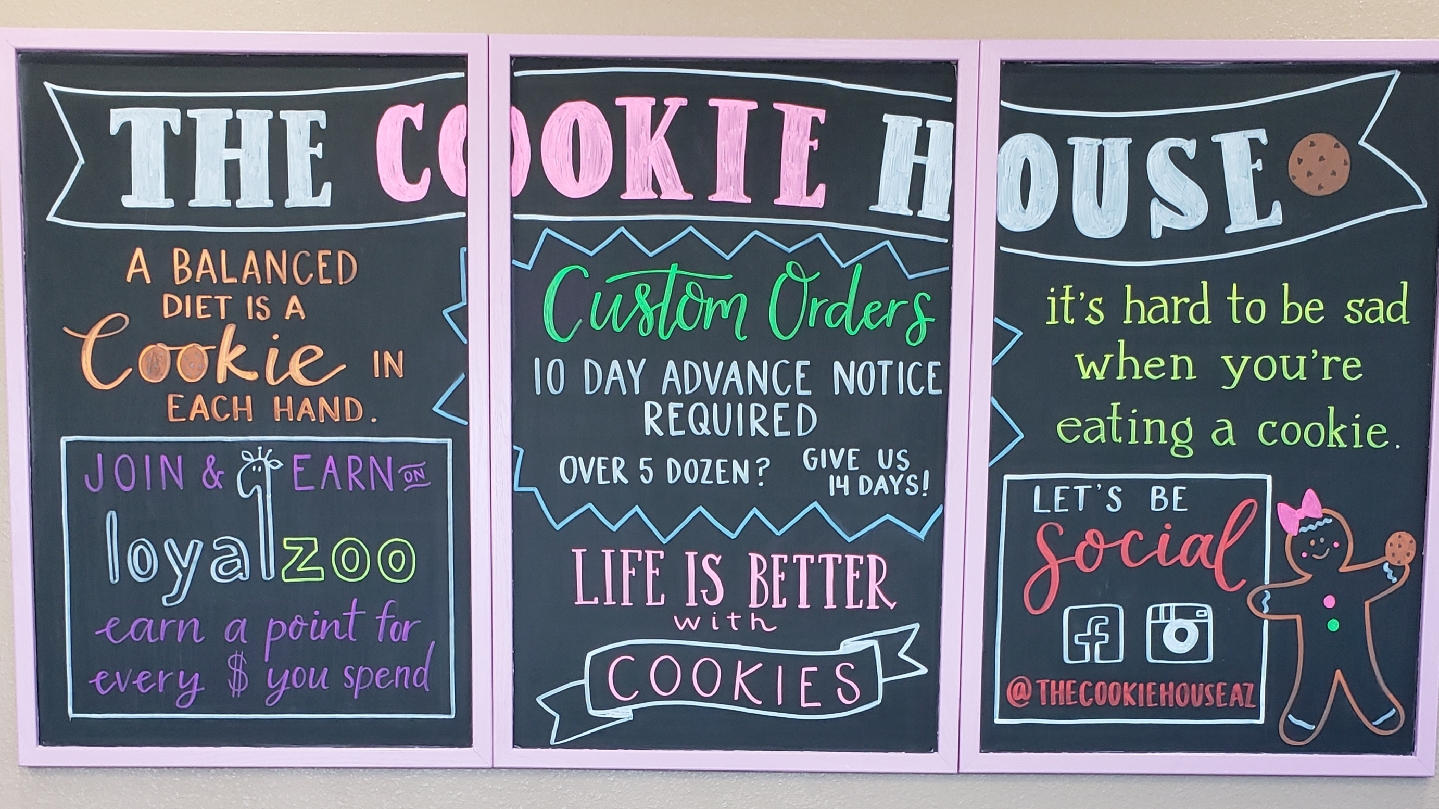 THE COOKIE HOUSE
A BALANCED
DIET IS A
Cookie IN
EACH HAND.
JOIN & EARN ON
loyalzoo
earn a point for
every $ you spend
Custom Orders
10 DAY ADVANCE NOTICE
REQUIRED
OVER 5 DOZEN? GIVE US
14 DAYS!
LIFE IS BETTER
with
COOKIES
it's hard to be sad
when you're
eating a cookie.
LET'S BE
social
f
@THECOOKIEHOUSEAZ